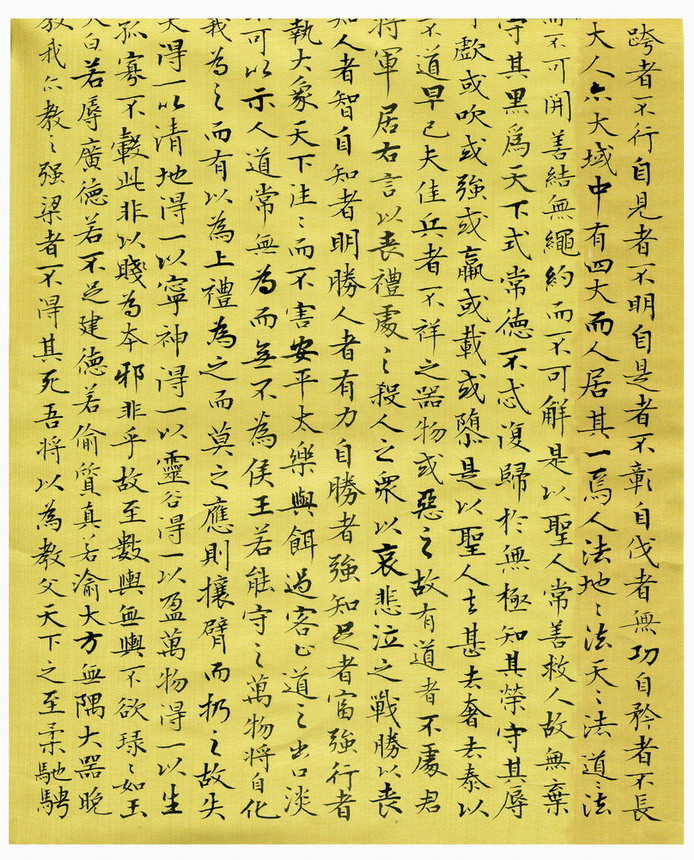 跨者不行自見者不明自是者不彰自伐者無功自矜者不長
大人亦大域中有四大而人居其一焉人法地〻法天〻法道〻法
而不可開善結無繩約而不可解是以聖人常善救人故無棄
守其黑為天下式常德不忒復歸於無極知其榮守其辱
歔或吹或強或羸或載或隳是以聖人去甚去奢去泰以
不道早已夫佳兵者不祥之器物或惡之故有道者不處君
將軍居右言以喪禮處之殺人之眾以哀悲泣之戰勝以喪
知人者智自知者明勝人者有力自勝者強知足者富強行者
執大象天下往〻而不害安平太樂與餌過客止道之出口淡
可以示人道常無為而無不為侯王若能守之萬物將自化
我為之而有以為上禮為之而莫之應則攘臂而扔之故失
天得一以清地得一以寧神得一以靈谷得一以盈萬物得一以生
孤寡不轂此非以賤為本邪非乎故至數輿無輿不欲琭〻如玉
大白若辱廣德若不足建德若偷質真若渝大方無隅大器晚
教我亦教之强梁者不得其死吾將以為教父天下之至柔馳騁